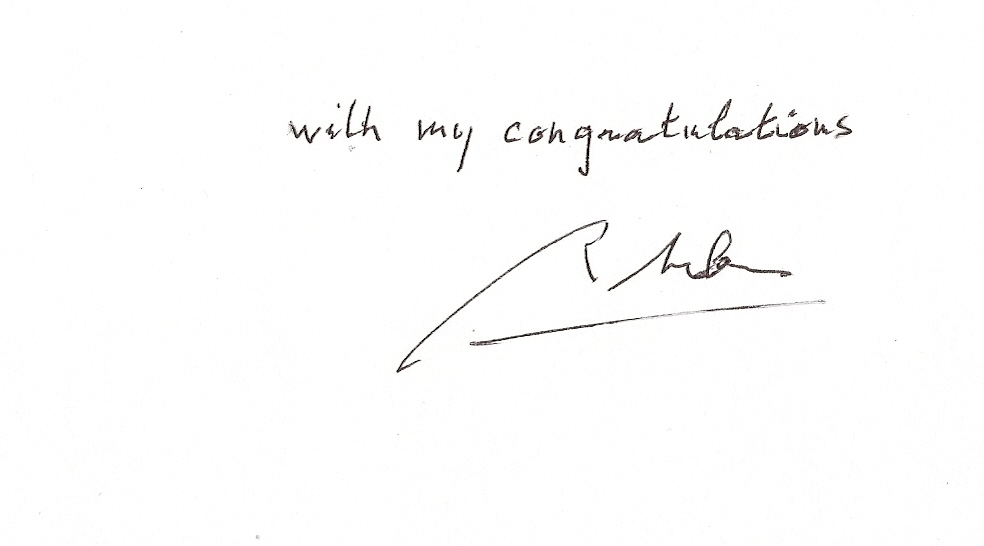 with my congratulations